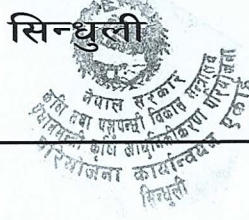 सिन्धुली
नेपाल सरकार
कृषि तथा पशुपन्छी विकास मन्त्रालय
प्रधानमन्त्री कृषि आधुनिकीकरण परियोजना
परियोजना कार्यान्वयन एकाई
सिन्धुली